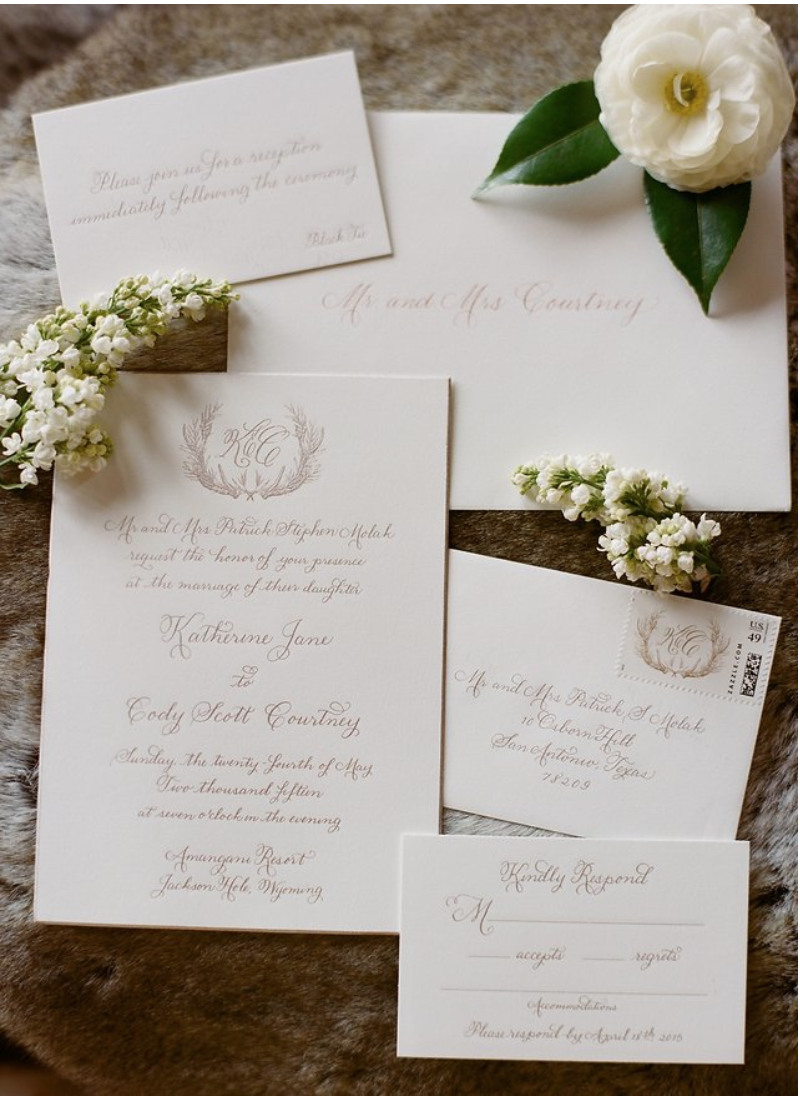 Please join us for a reception
immediately following the ceremony
Black Tie
Mr and Mrs Courtney
K&C
Mr and Mrs Patrick Stephen Molak
request the honor of your presence
at the marriage of their daughter
Katherine Jane
to
Cody Scott Courtney
Sunday, the twenty-fourth of May
Two thousand fifteen
at seven o'clock in the evening
Amangani Resort
Jackson Hole, Wyoming
K&C
U.S.
49
ZAZZLE.COM
Mr and Mrs Patrick S Molak
10 Osborn Hill
San Antonio, Texas
78209
Kindly Respond
M
accepts regrets
Accommodations
Please respond by April 18th 2015